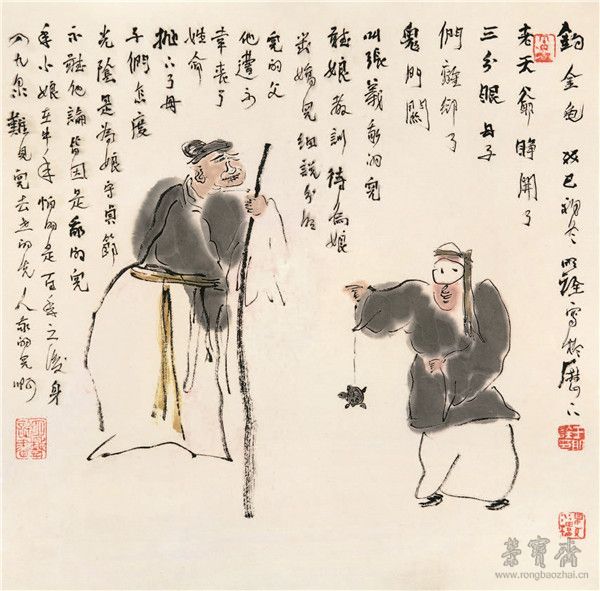 釣金龜 癸巳初冬 明詮寫於歷下
老天爺睜開了
三分眼母子
們離卻了
鬼門關
叫張義我的兒
聽娘教訓待為娘
對嬌兒細說分明
兒的父
他遭不
幸喪了
性命
拋下了母
子們怎度
光陰是為娘守貞節
不聽他論皆因是我的兒
年小娘在年怕的是百年之後身
入九泉難見兒去世的先人我的兒啊
榮寶齋
www.rongbaozhai.cn